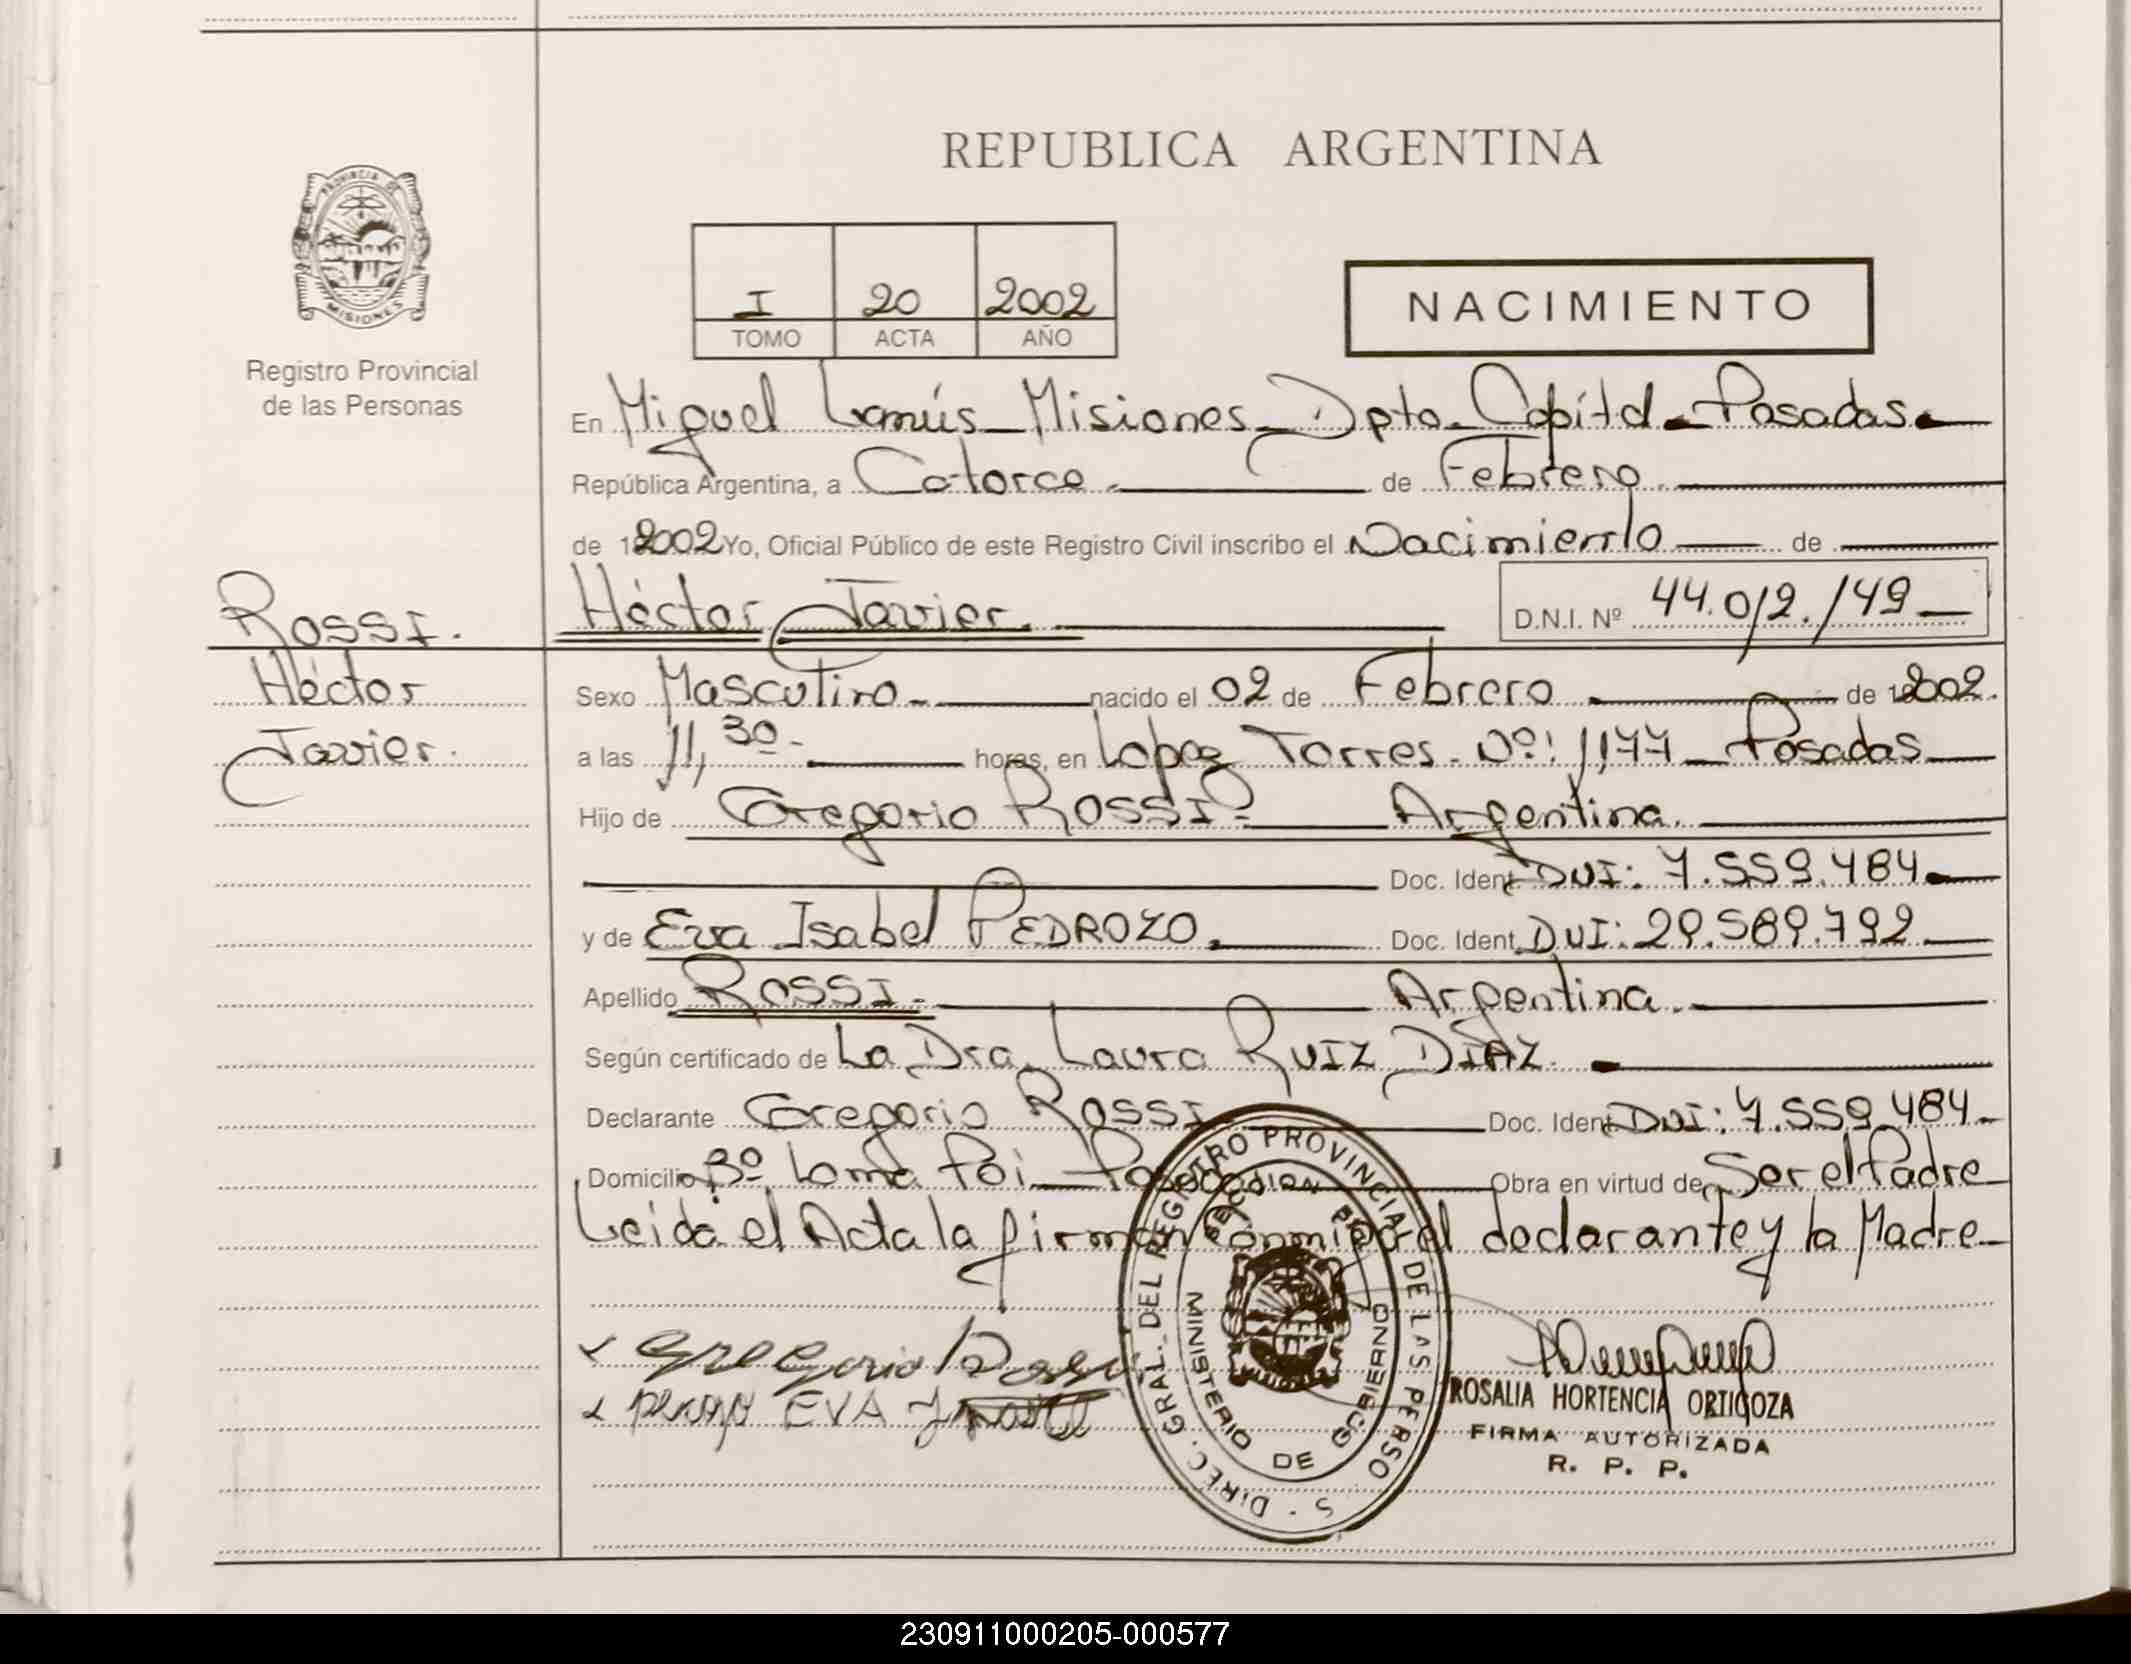 REPUBLICA ARGENTINA
PROVINCIA DE
MISIONES
Registro Provincial
de las Personas
I 20 2002
TOMO ACTA AÑO
NACIMIENTO
En Miguel Lanús - Misiones - Dpto. Capital - Posadas.
República Argentina, a Catorce. de Febrero.
de 2002 Yo, Oficial Público de este Registro Civil inscribo el Nacimiento de
Rossi.
Héctor
Javier.
Héctor Javier. D.N.I. Nº 44.012.149
Sexo Masculino. nacido el 02 de Febrero de 2002.
a las 11,30 horas, en Lopez Torres. Nº: 1,177 - Posadas
Hijo de Gregorio Rossi. Argentina.
Doc. Ident. DNI: 7.559.484
y de Eva Isabel PEDROZO. Doc. Ident. DNI: 29.589.792
Apellido Rossi. Argentina.
Según certificado de La Dra. Laura Ruiz Díaz.
Declarante Gregorio Rossi Doc. Ident. DNI: 7.559.484.
Domicilio Bº Loma Poi - Posadas Obra en virtud de Ser el Padre
Leida el Acta la firman conmigo el declarante y la Madre
Gregorio Rossi
EVA
DIREC. GRAL. DEL REGISTRO PROVINCIAL DE LAS PERSO
MINISTERIO DE GOBIERNO
ROSALIA HORTENCIA ORTIGOZA
FIRMA AUTORIZADA
R. P. P.
230911000205-000577